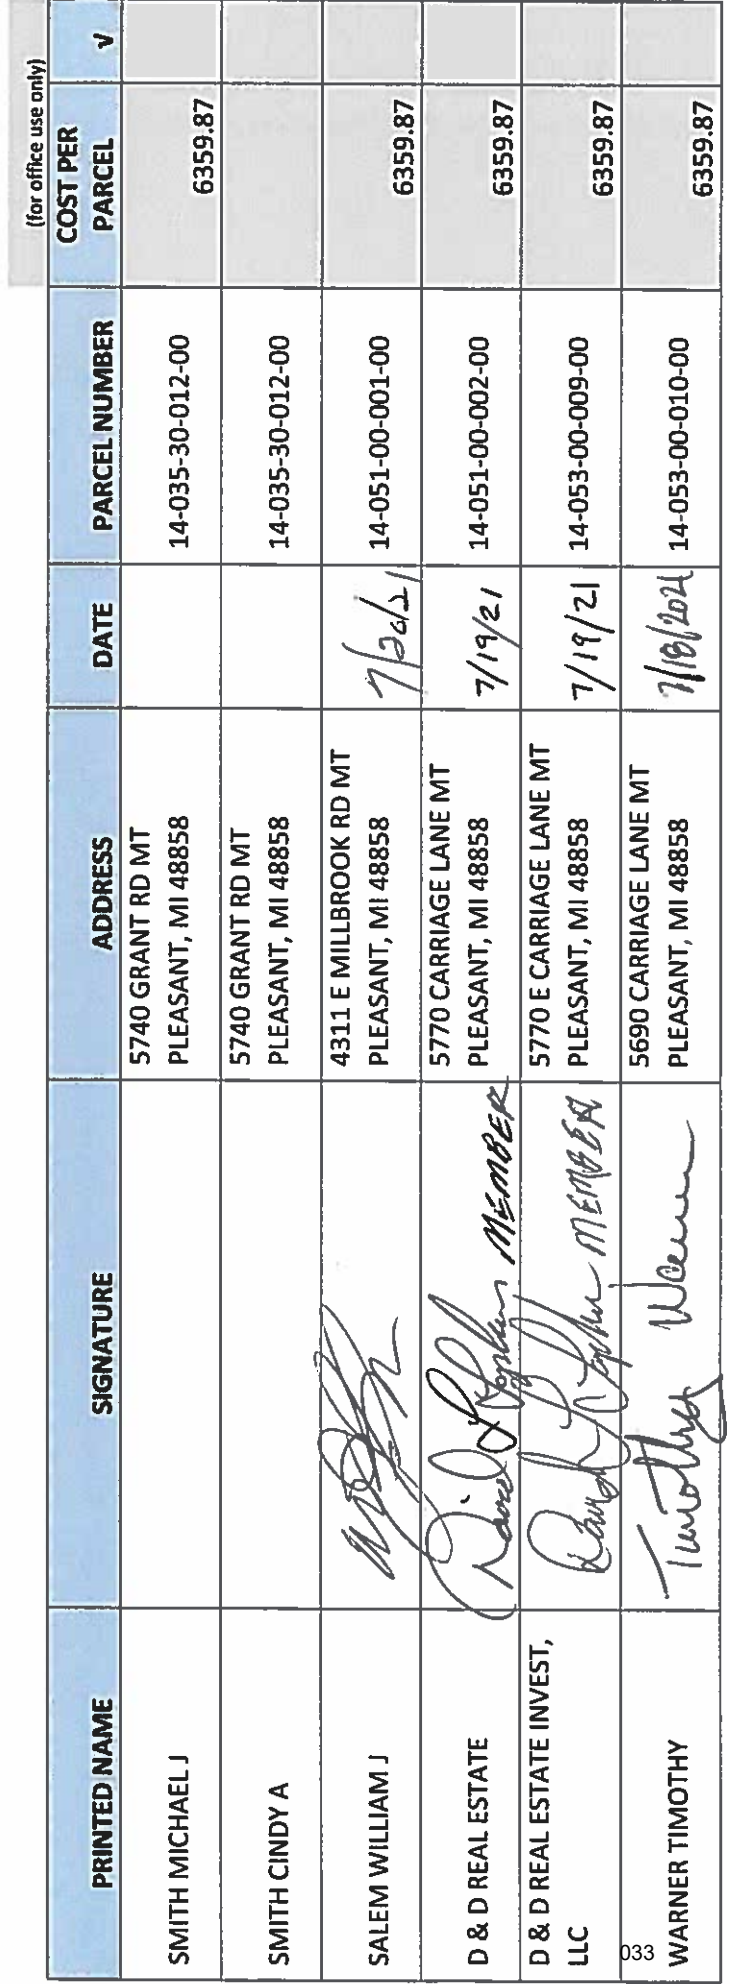 (for office use only)
PRINTED NAME SIGNATURE ADDRESS DATE PARCEL NUMBER COST PER PARCEL √
SMITH MICHAEL J 5740 GRANT RD MT PLEASANT, MI 48858 14-035-30-012-00 6359.87
SMITH CINDY A 5740 GRANT RD MT PLEASANT, MI 48858 14-035-30-012-00
SALEM WILLIAM J 4311 E MILLBROOK RD MT PLEASANT, MI 48858 7/20/21 14-051-00-001-00 6359.87
D & D REAL ESTATE David L MEMBER 5770 CARRIAGE LANE MT PLEASANT, MI 48858 7/19/21 14-051-00-002-00 6359.87
D & D REAL ESTATE INVEST, LLC David L MEMBER 5770 E CARRIAGE LANE MT PLEASANT, MI 48858 7/19/21 14-053-00-009-00 6359.87
WARNER TIMOTHY Timothy Warner 5690 CARRIAGE LANE MT PLEASANT, MI 48858 7/18/2021 14-053-00-010-00 6359.87
033